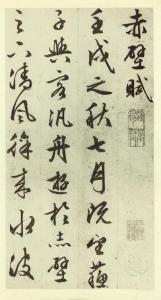 赤壁賦
壬戌之秋七月既望蘇
子與客汎舟游於赤壁
之下清風徐来水波